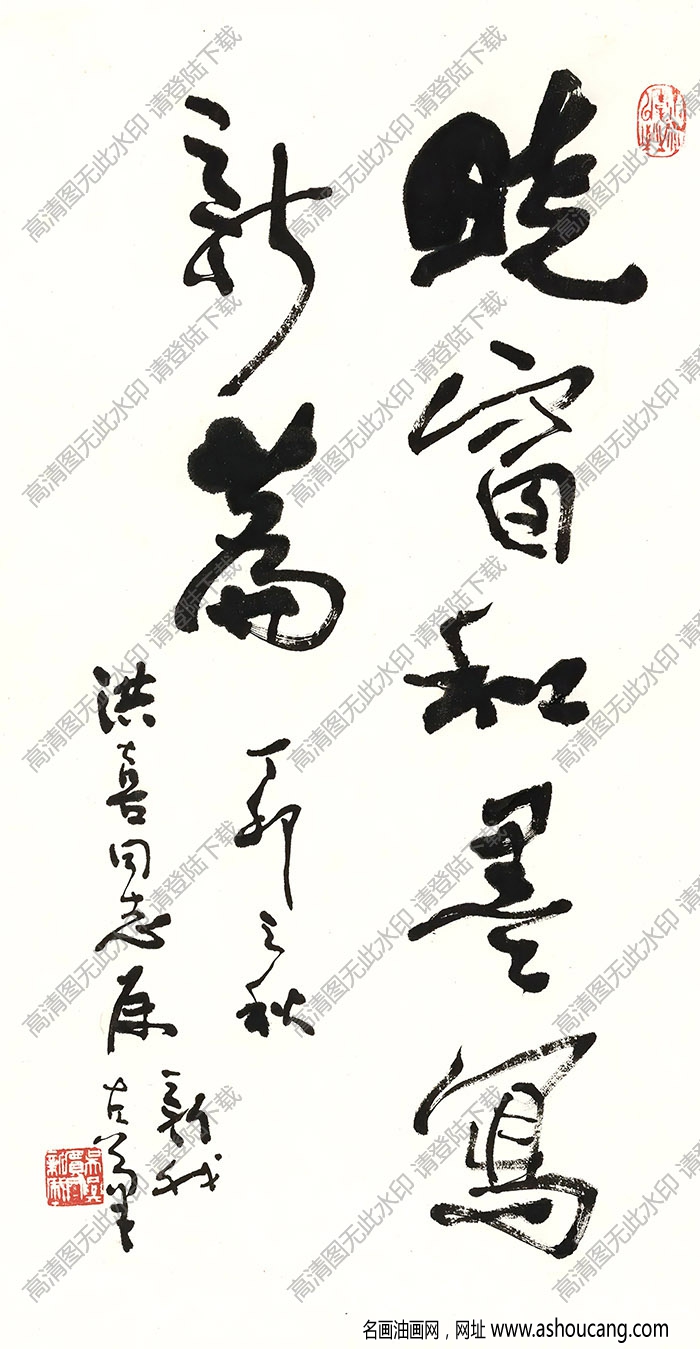 晓窗和墨寫
新篇
丁卯之秋
洪喜同志属
新我
左筆
吴興費新我
高清图无此水印 请登陆下载
名画油画网，网址 www.ashoucang.com